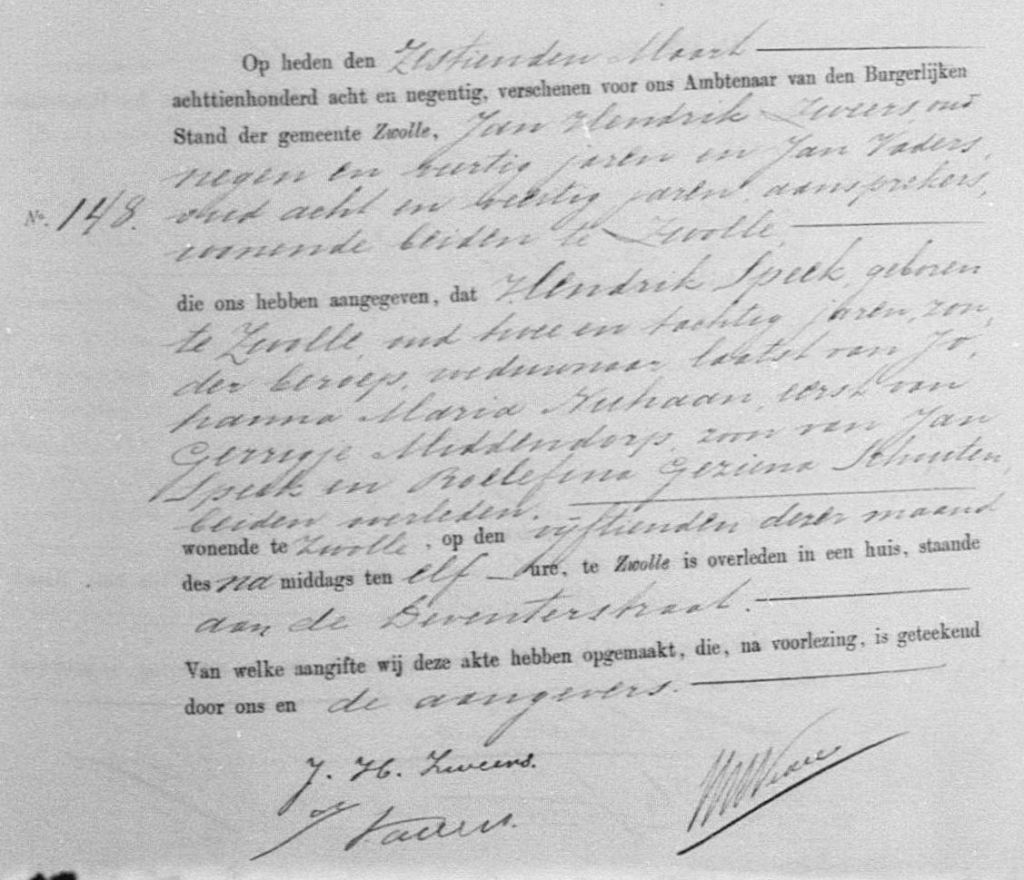 Op heden den Zestienden Maart
achttienhonderd acht en negentig, verschenen voor ons Ambtenaar van den Burgerlijken
Stand der gemeente Zwolle, Jan Hendrik Zweers, oud
negen en veertig jaren en Jan Vaders,
No. 148. oud acht en veertig jaren, aansprekers,
wonende beiden te Zwolle,
die ons hebben aangegeven, dat Hendrik Speek, geboren
te Zwolle, oud twee en tachtig jaren, zon,
der beroep, weduwnaar laatst van Jo,
hanna Maria eerst van
Gerrigje Middendorp, zoon van Jan
Speek en Roelefina Geziena Schuten,
beiden overleden.
wonende te Zwolle, op den vijftienden dezer maand
des na middags ten elf ure, te Zwolle is overleden in een huis, staande
aan de Deventerstraat.
Van welke aangifte wij deze akte hebben opgemaakt, die, na voorlezing, is geteekend
door ons en de aangevers.
J. H. Zweers.
J Vaders.